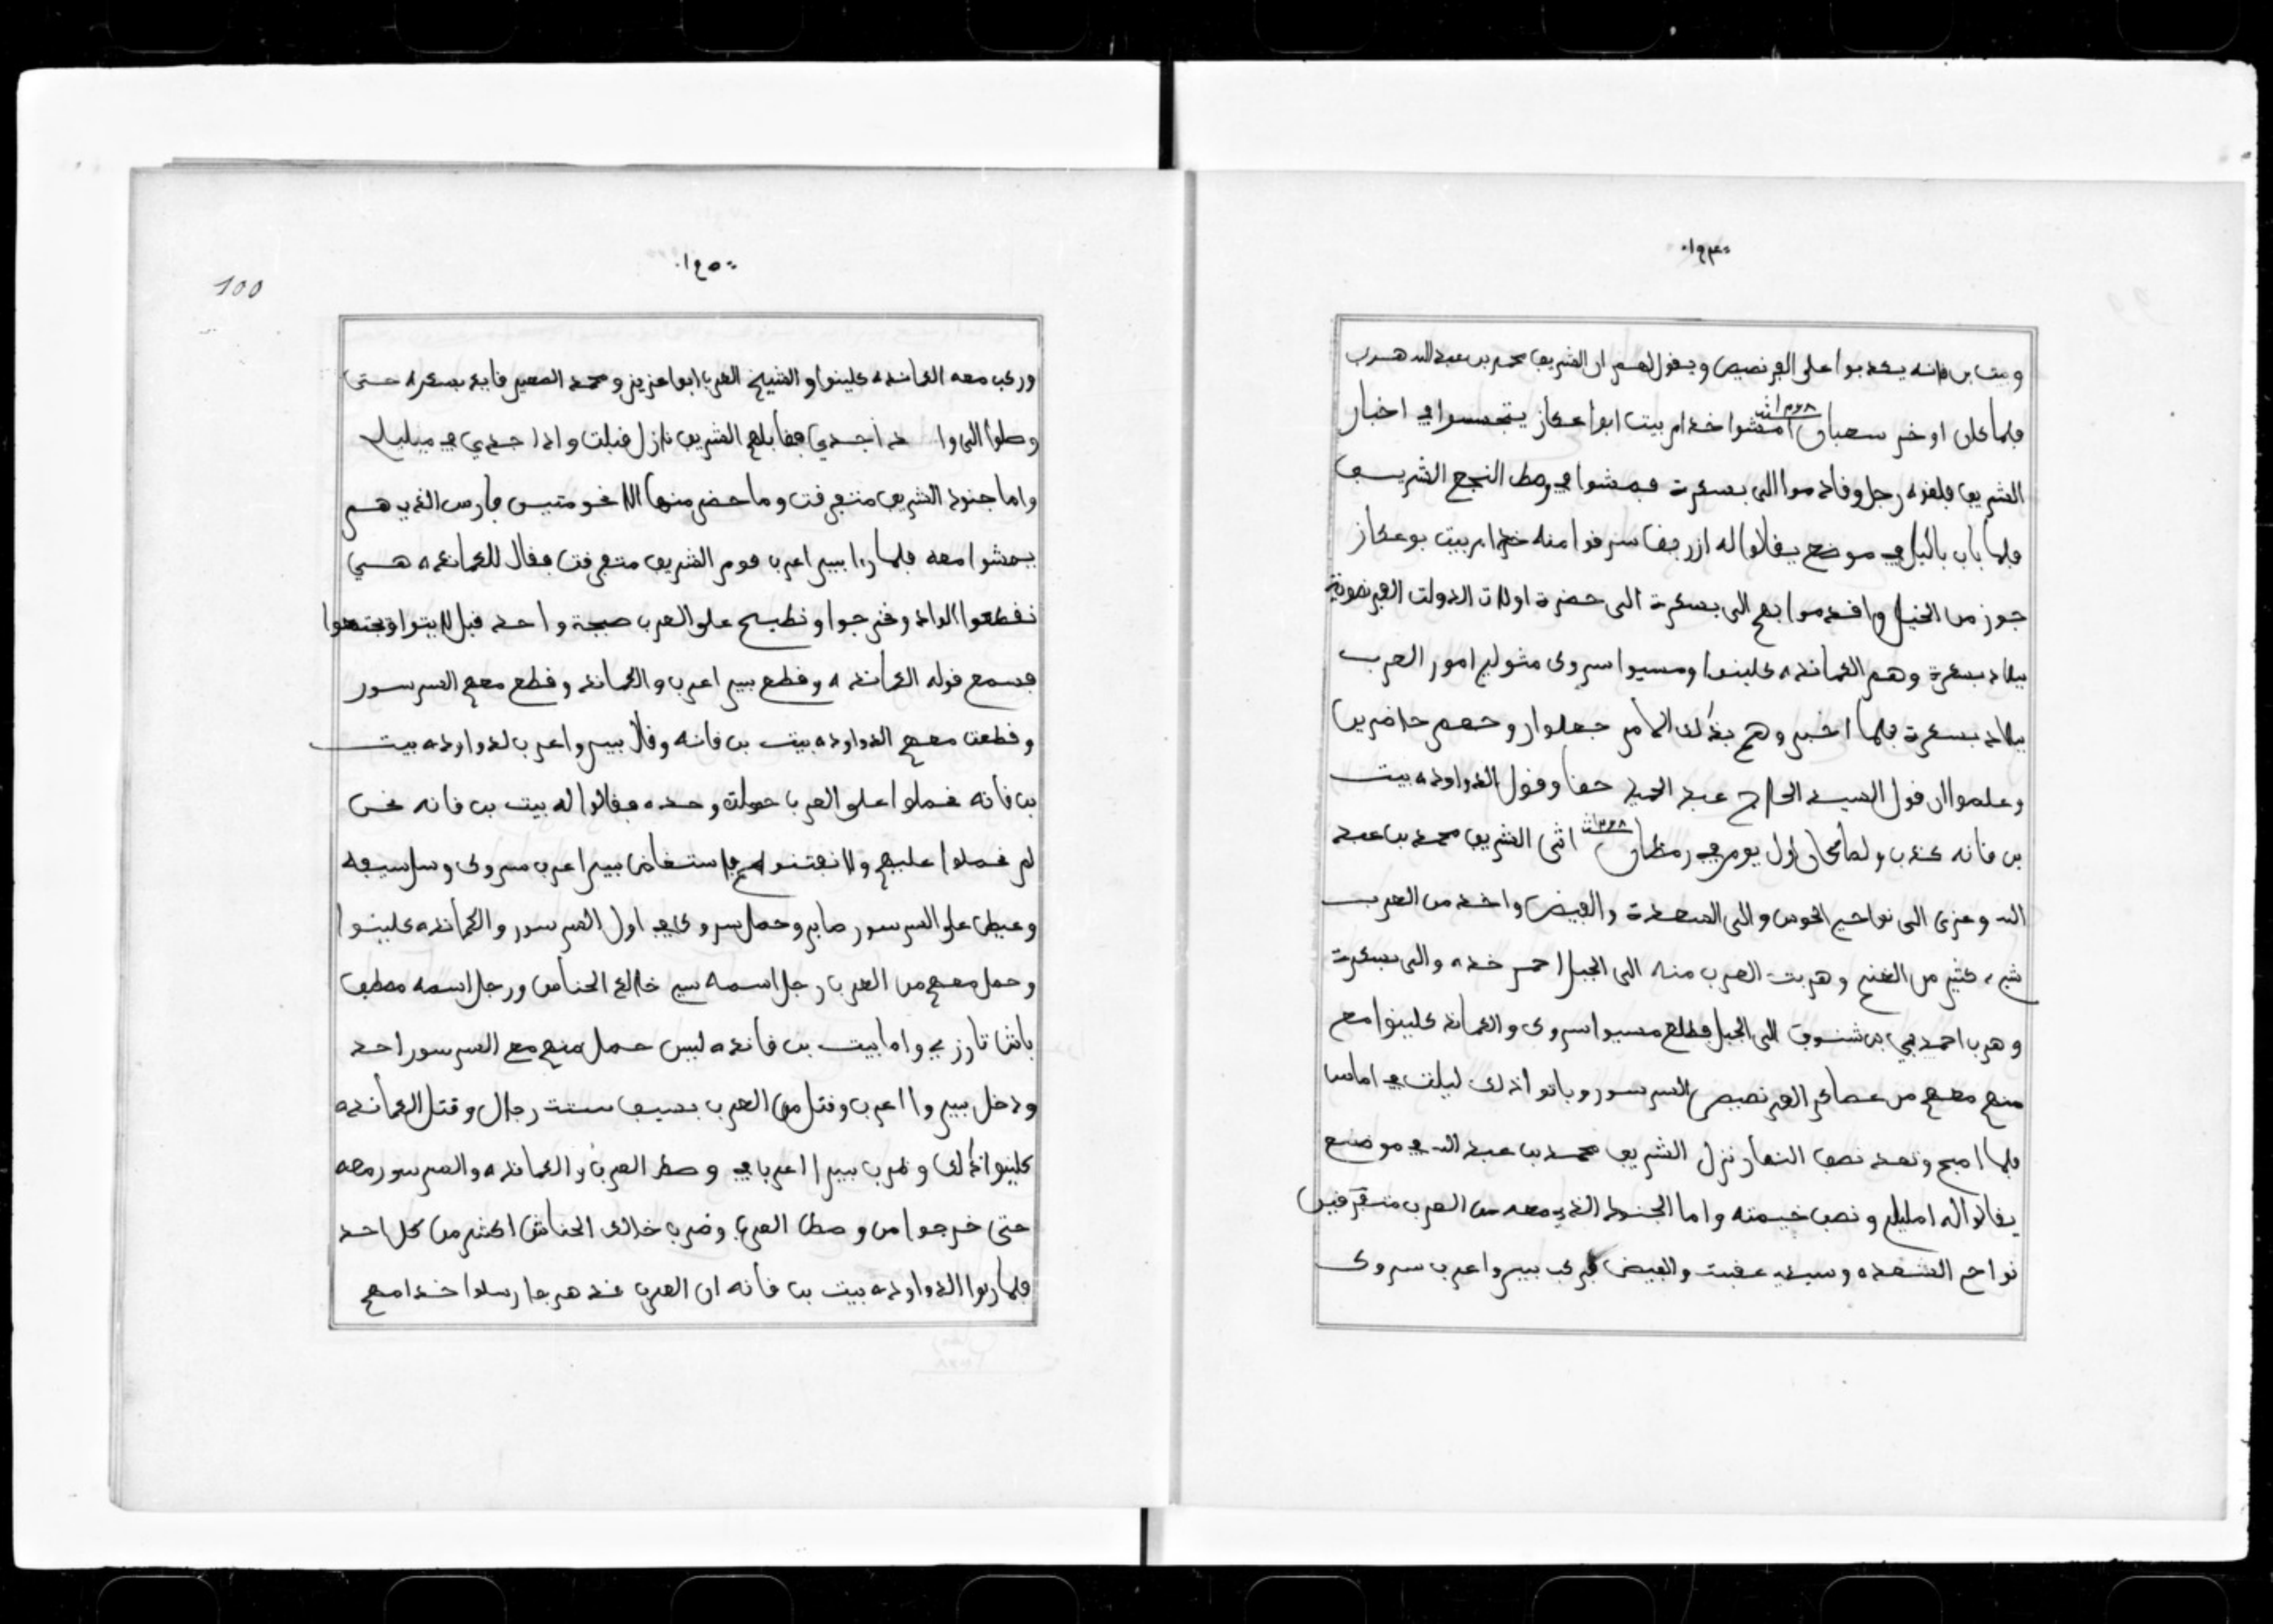 ١٩٤
وبيت بن فانه يكذبوا على الفرنصيص ويقول لهم ان الشريف محمد بن عبد الله هرب
فلما كان اوخر سعبان ١٢٦٨ امشوا خدام بيت ابوا عكاز يتجسسوا في اخبار
الشريف فلفزه رجل وقادموا الى بسكرة فمشوا في وصط النجع الشريف
فلما باب باليل في موضع يقالوا له ازرقفا سرقوا منه خدام بيت بوعكاز
جوز من الخيل واقدموا بهم الى بسكرة الى حضرة اولات الدولت الفرنصوية
ببلاد بسكرة وهم الكمانده كلينوا ومسيوا سروكى متولي امور العرب
ببلاد بسكرة فلما اخبروهم بذلك الامر جعلوا روحهم حاضرين
وعلموا ان قول السيد الحاج عبد الحميد حقا وقول الدواوده بيت
بن فانه كذب ولما كان اول يوم في رمظان ١٢٦٨ اتى الشريف محمد بن عبد
الله وغزى الى نواحي الحوس والى السعدة والفيض واخذ من العرب
شيء كثير من الغنم وهربت العرب منه الى الجبل احمر خده والى بسكرة
وهرب احمد بي بن شنوف الى الجبل فطلع مسيوا سروكى والكمانده كلينوا مع
منهم معهم من عصاكر الفرنصيص السرسور وباتوا اذلك ليلت في اماس
فلما اصبح وتعد نصف النهار نزل الشريف محمد بن عبد الله في موضع
يقالوا له امليلي ونصب خيمته واما الجنود الذي معه من العرب متفرقين
نواحي السعده وسيدي عقبت والفيض فركب بيروا عرب سروكى
١٩٥
100
وركب معه الكمانده كلينوا والشيخ العرب ابوا عزيز ومحمد الصغير قايد بسكره حتى
وصلوا الى واد اجدي فقابلهم الشريف نازل قبلت واد اجدي في ميليلي
واما جنود الشريف متفرقت وما حضر منها الا نحو متيس فارس الذي هم
يمشوا معه فلما راء بيرا اعرب قوم الشريف متفرقت فقال للكمانده هي
نقطعوا الواد ونخرجوا ونطيح على العرب صيحة واحد قبل لا يتوا ويجتمعوا
فسمع قوله الكمانده وقطع بير اعرب والكمانده وقطع معهم السرسور
وقطعت معهم الدواوده بيت بن فانه وقال بيروا عرب لدواوده بيت
بن فانه نحملوا على العرب حملت وحده فقالوا له بيت بن فانه نحن
لم نحملوا عليهم ولا نفتنوهم فاستغاض بيرا عرب سروكى وسل سيفه
وعيطى على السرسور صابر وحمل سروكى في اول السرسور والكمانده كلينوا
وحمل معهم من العرب رجل اسمه سي خالد الحناش ورجل اسمه مصطفى
باش تارزي واما بيت بن فانده ليس حمل منهم مع السرسور احد
ودخل بيروا اعرب وقتل من العرب بسيف ستت رجال وقتل الكمانده
كلينوا اذلك وضرب بيرا اعرب في وصط العرب والكمانده والسرسور معه
حتى خرجوا من وصط العرب وضرب خالد الحناش اكثر من كل احد
فلما راوا الدواوده بيت بن فانه ان العرب قد هرجا ارسلوا خدامهم